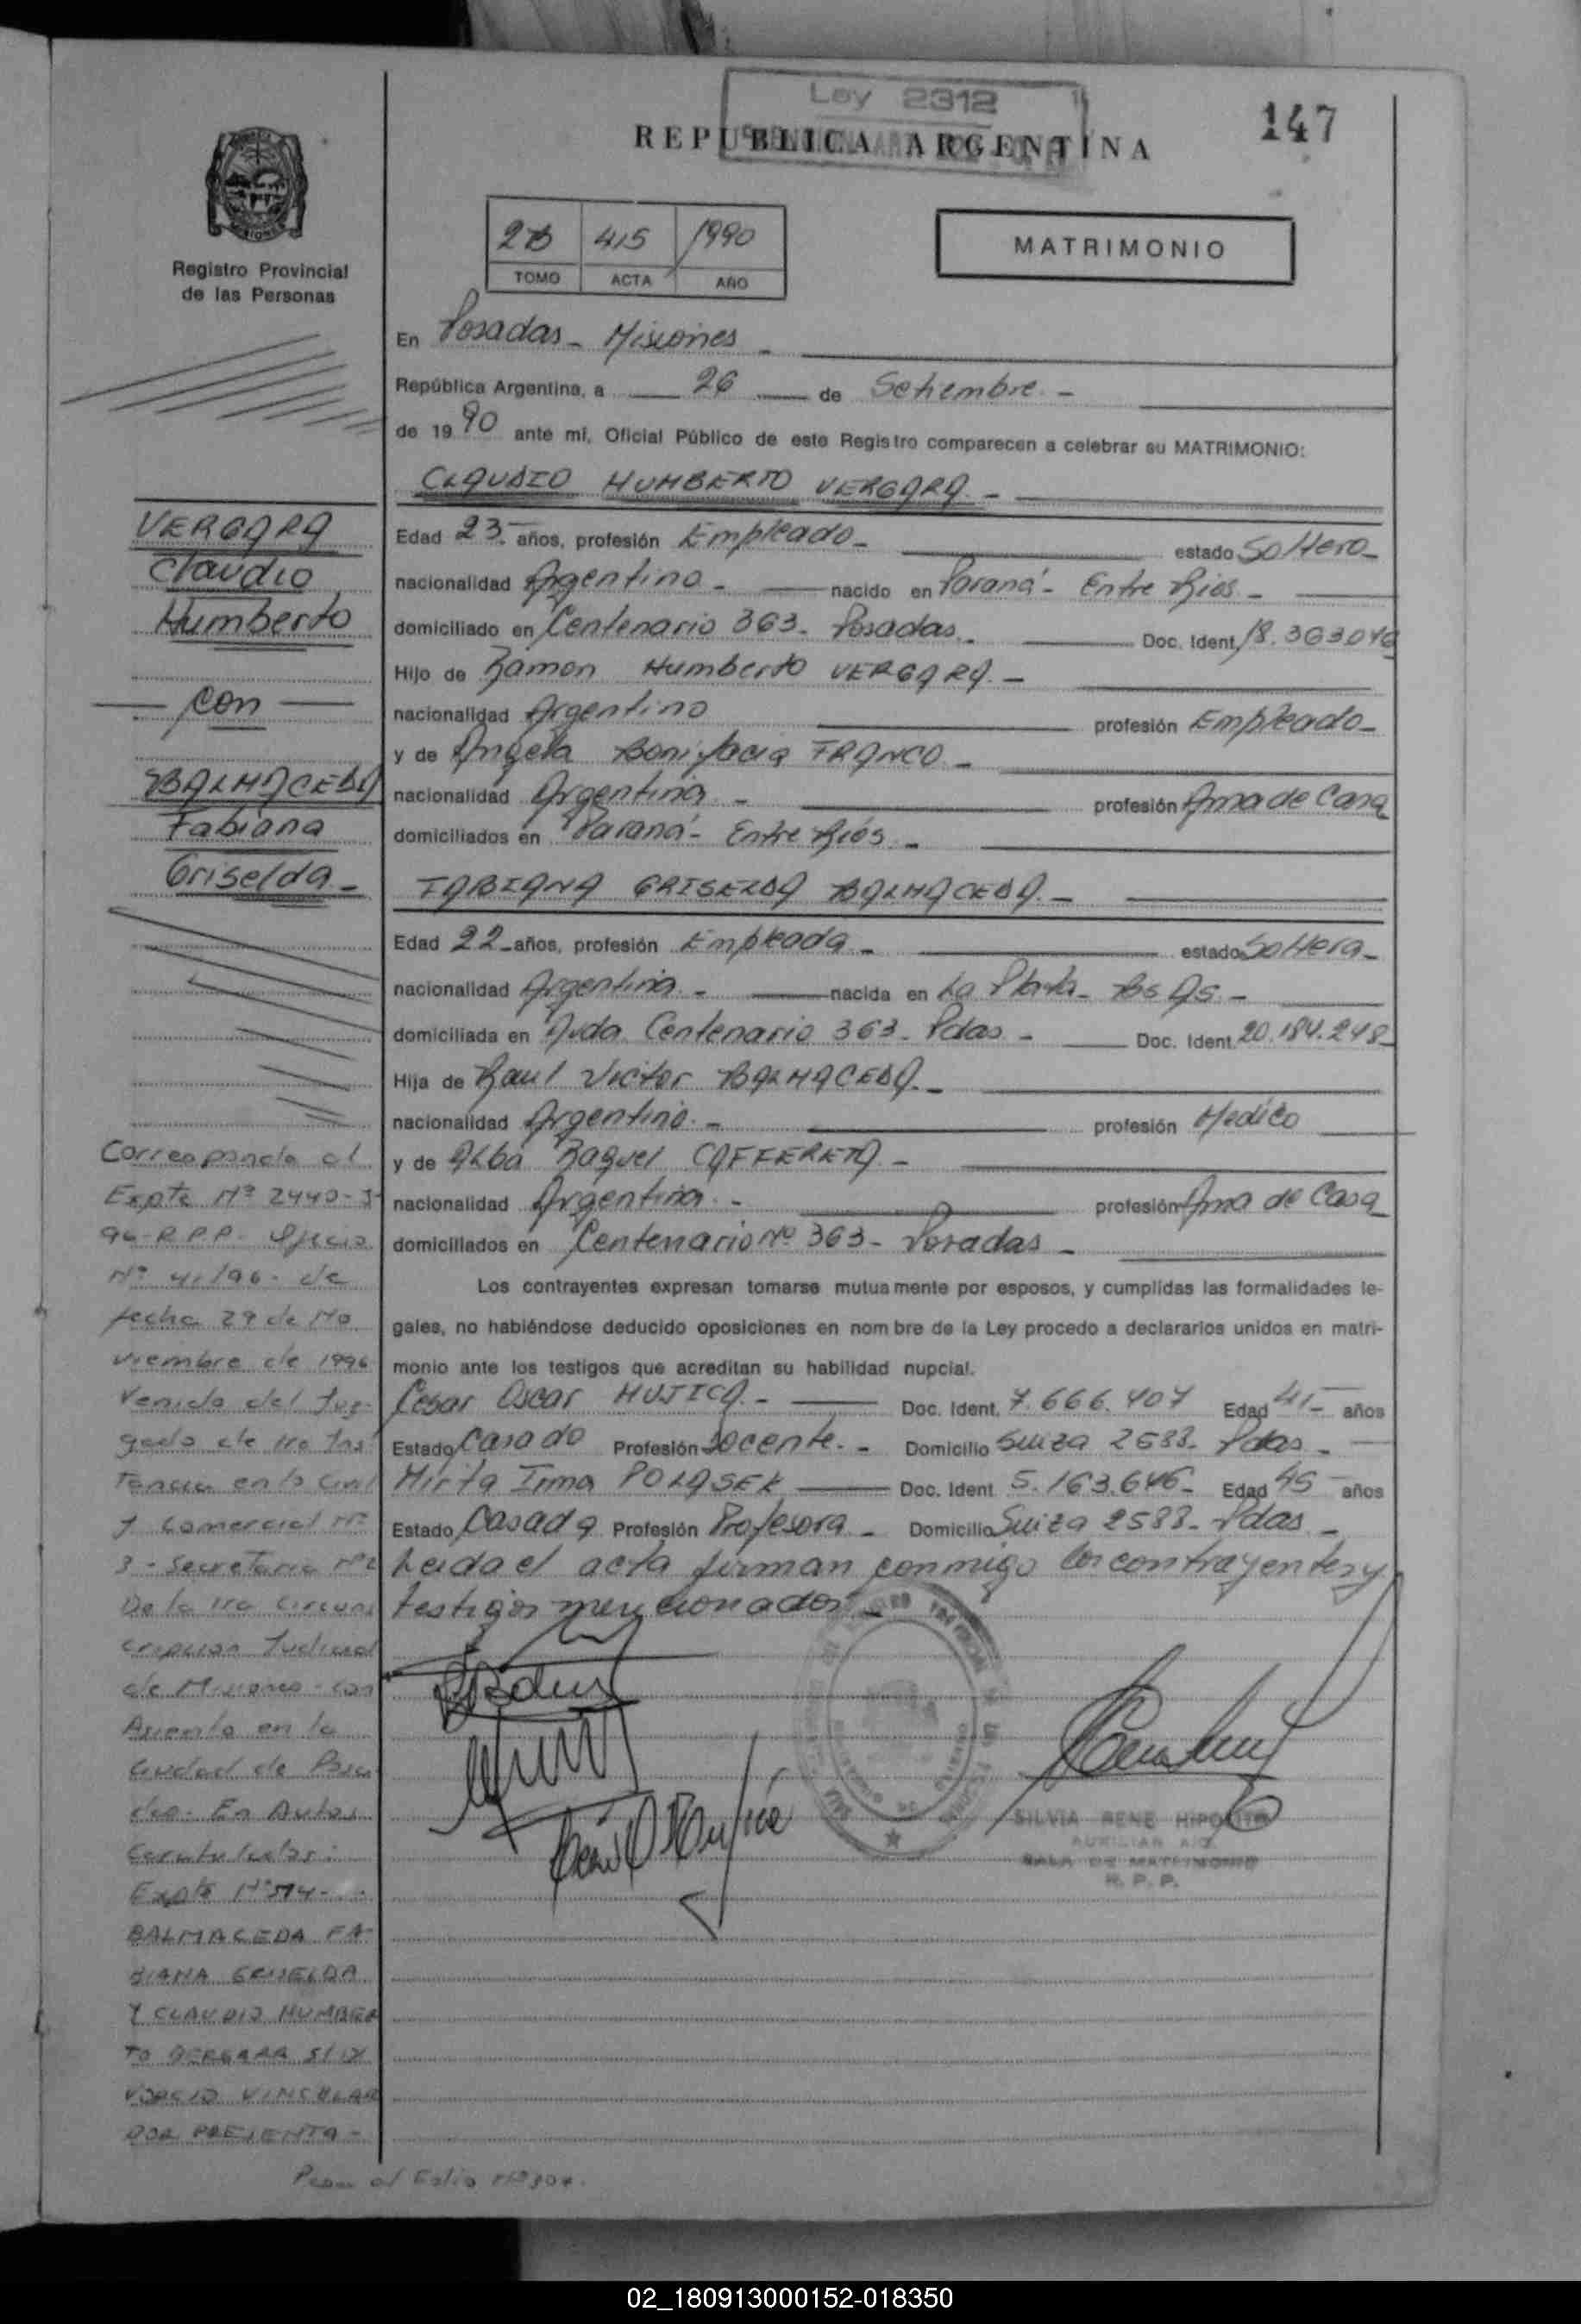 Ley 2312
147
REPUBLICA ARGENTINA
PROVINCIA
MISIONES
Registro Provincial
de las Personas
2B 415 1990
TOMO ACTA AÑO
MATRIMONIO
En Posadas - Misiones -
República Argentina, a 26 de Setiembre. -
de 1990 ante mí, Oficial Público de este Registro comparecen a celebrar su MATRIMONIO:
CLAUDIO HUMBERTO VERGARA. -
Edad 23. años, profesión Empleado - estado Soltero -
nacionalidad Argentino - nacido en Paraná - Entre Ríos. -
domiciliado en Centenario 363. Posadas. - Doc. Ident. 18.363046
Hijo de Ramon Humberto VERGARA. -
nacionalidad Argentino profesión Empleado -
y de Angela Bonifacia FRANCO. -
nacionalidad Argentina. - profesión Ama de Casa
domiciliados en Paraná - Entre Ríos. -
FABIANA GRISELDA BALMACEDA. -
Edad 22 - años, profesión Empleada - estado Soltera -
nacionalidad Argentina. - nacida en La Plata - Bs As. -
domiciliada en Avda. Centenario 363 - Pdas. - Doc. Ident. 20.184.248 -
Hija de Raul Victor BALMACEDA. -
nacionalidad Argentino. - profesión Medico
y de Alba Raquel CAFFERETA. -
nacionalidad Argentina. - profesión Ama de Casa
domiciliados en Centenario Nº 363 - Posadas -
Los contrayentes expresan tomarse mutuamente por esposos, y cumplidas las formalidades le-
gales, no habiéndose deducido oposiciones en nombre de la Ley procedo a declararlos unidos en matri-
monio ante los testigos que acreditan su habilidad nupcial.
Cesar Oscar MUJICA. - Doc. Ident. 7.666.407 Edad 41 - años
Estado Casado Profesión Docente. - Domicilio Suiza 2533 - Pdas -
Mirta Irma POLASEK Doc. Ident. 5.163.646 - Edad 45 años
Estado Casada Profesión Profesora - Domicilio Suiza 2533 - Pdas -
Leida el acta firman conmigo los contrayentes y
testigos mencionados -
SILVIA RENE HIPOLITO
AUXILIAR
SALA DE MATRIMONIO
R. P. P.
VERGARA
Claudio
Humberto
con
BALMACEDA
Fabiana
Griselda -
Corresponde al
Expte Nº 2440 - J -
96 - R.P.P. Oficio
Nº 41/96 - de
fecha 29 de No
viembre de 1996
Venido del Juz-
gado de 1ra Ins
tancia en lo Civil
y Comercial Nº
3 - Secretaria Nº 2
De la 1ra Circuns
cripcion Judicial
de Misiones - con
Asiento en la
Ciudad de Posa
das - En Autos
Caratulados:
Expte Nº 514 -
BALMACEDA FA
BIANA GRISELDA
Y CLAUDIO HUMBER
TO VERGARA S/ DI
VORCIO VINCULAR
POR PRESENTA -
Pasa al Folio Nº 304.
02_180913000152-018350